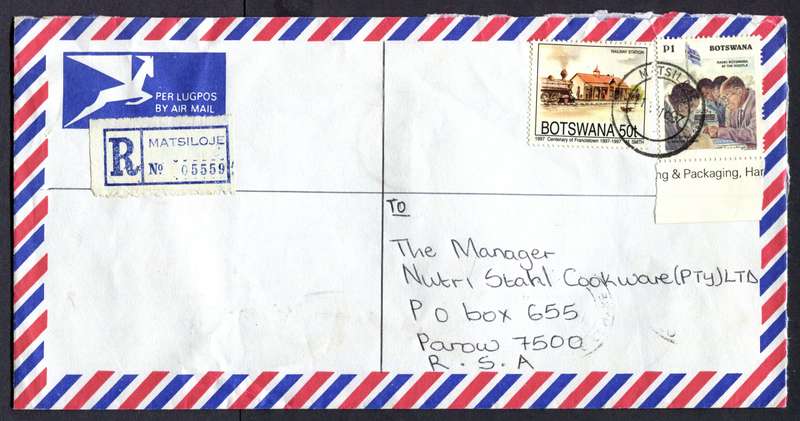 PER LUGPOS
BY AIR MAIL
R
MATSILOJE
No 05559
RAILWAY STATION
BOTSWANA 50t
1897 Centenary of Francistown 1997
P1 BOTSWANA
MATSIL
ng & Packaging, Har
TO
The Manager
Nutri Stahl Cookware (PTY) LTD
P O box 655
Parow 7500
R . S . A